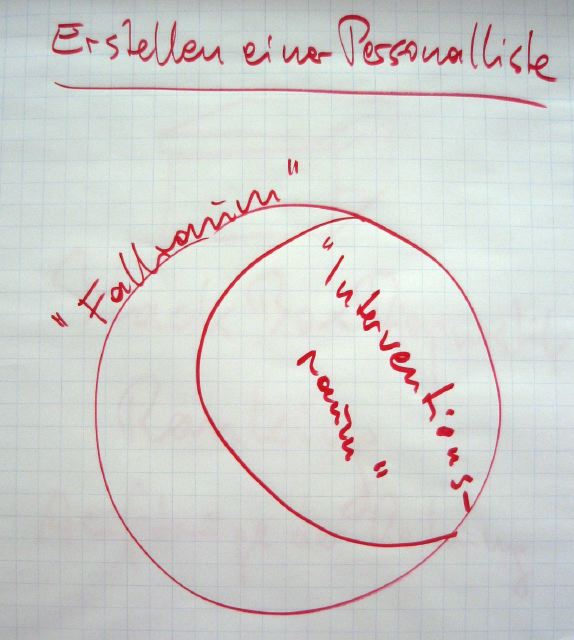 Erstellen einer Personalliste
"Fallraum"
"Interventions-
raum"